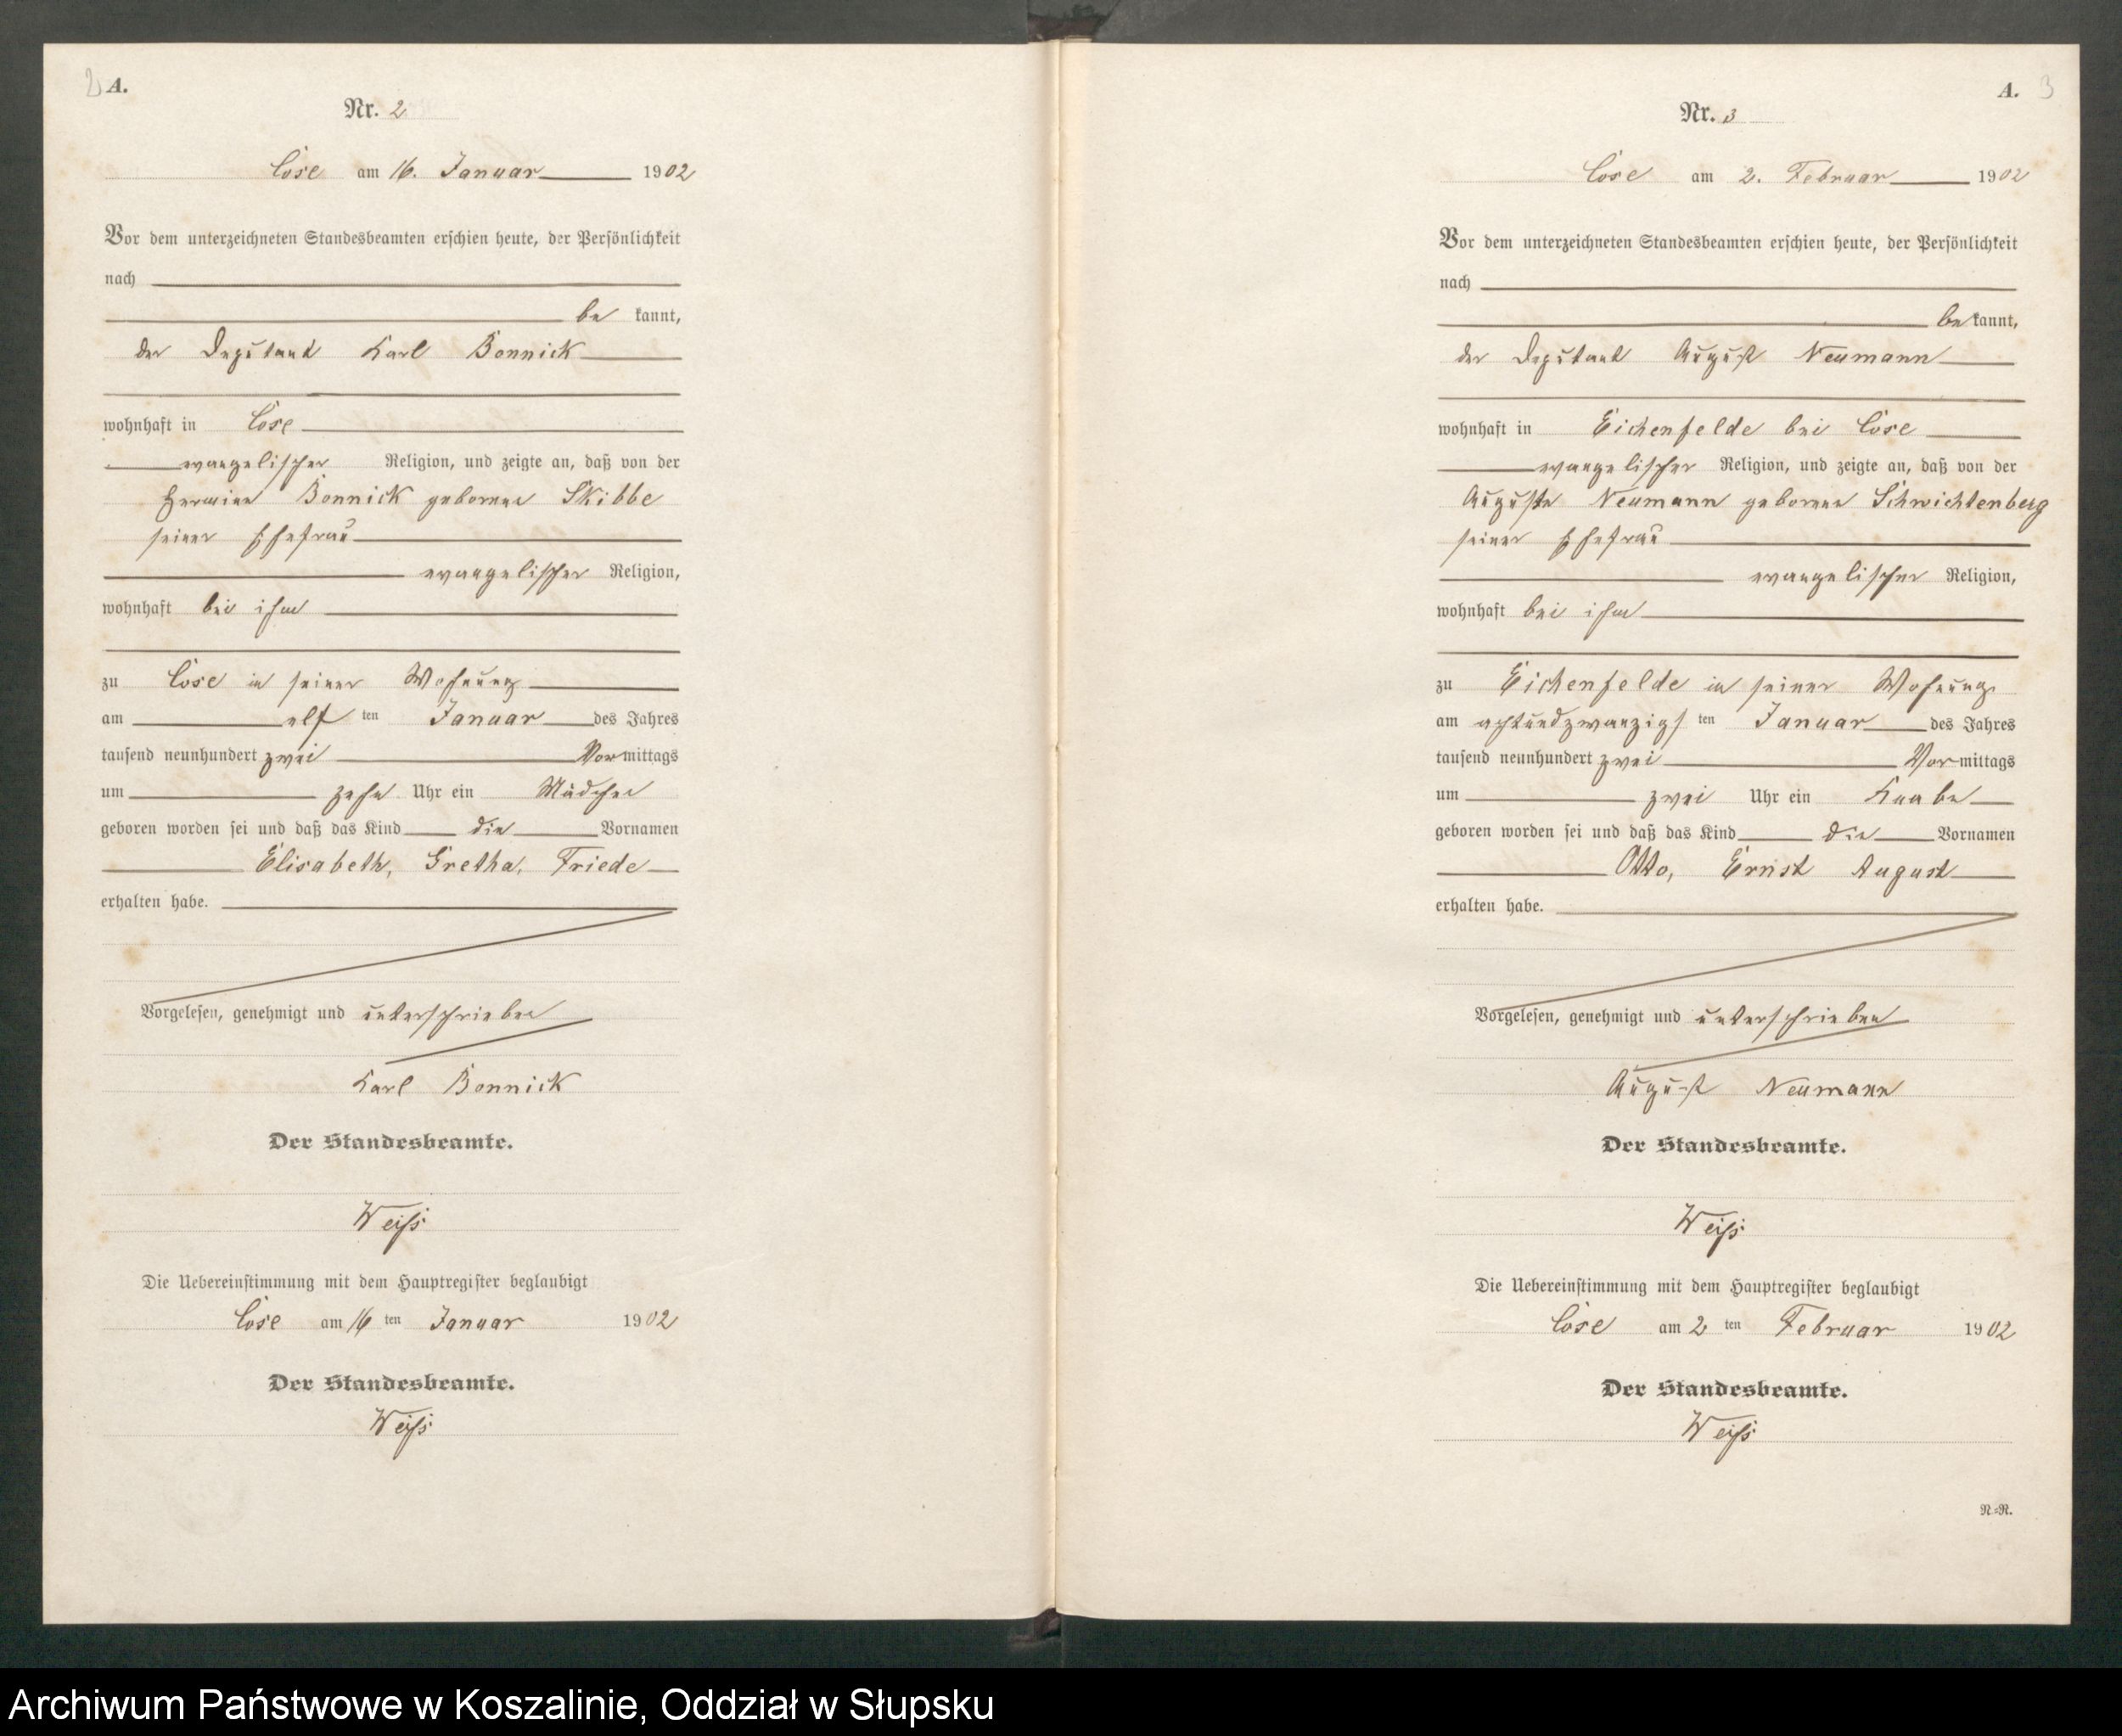 2 A.
Nr. 2
Cose am 16. Januar 1902
Vor dem unterzeichneten Standesbeamten erschien heute, der Persönlichkeit
nach
be kannt,
der Deputant Karl Bonnick
wohnhaft in Cose
evangelischer Religion, und zeigte an, daß von der
Hermine Bonnick geborene Skibbe
seiner Ehefrau
evangelischer Religion,
wohnhaft bei ihm
zu Cose in seiner Wohnung
am elf ten Januar des Jahres
tausend neunhundert zwei Vormittags
um zehn Uhr ein Mädchen
geboren worden sei und daß das Kind die Vornamen
Elisabeth, Gretha, Friede
erhalten habe.
Vorgelesen, genehmigt und unterschrieben
Karl Bonnick
Der Standesbeamte.
Weiß
Die Uebereinstimmung mit dem Hauptregister beglaubigt
Cose am 16 ten Januar 1902
Der Standesbeamte.
Weiß
A. 3
Nr. 3
Cose am 2. Februar 1902
Vor dem unterzeichneten Standesbeamten erschien heute, der Persönlichkeit
nach
bekannt,
der Deputant August Neumann
wohnhaft in Eichenfelde bei Cose
evangelischer Religion, und zeigte an, daß von der
Auguste Neumann geborene Schwichtenberg
seiner Ehefrau
evangelischer Religion,
wohnhaft bei ihm
zu Eichenfelde in seiner Wohnung
am achtundzwanzigs ten Januar des Jahres
tausend neunhundert zwei Vormittags
um zwei Uhr ein Knabe
geboren worden sei und daß das Kind die Vornamen
Otto, Ernst August
erhalten habe.
Vorgelesen, genehmigt und unterschrieben
August Neumann
Der Standesbeamte.
Weiß
Die Uebereinstimmung mit dem Hauptregister beglaubigt
Cose am 2 ten Februar 1902
Der Standesbeamte.
Weiß
N=R.
Archiwum Państwowe w Koszalinie, Oddział w Słupsku